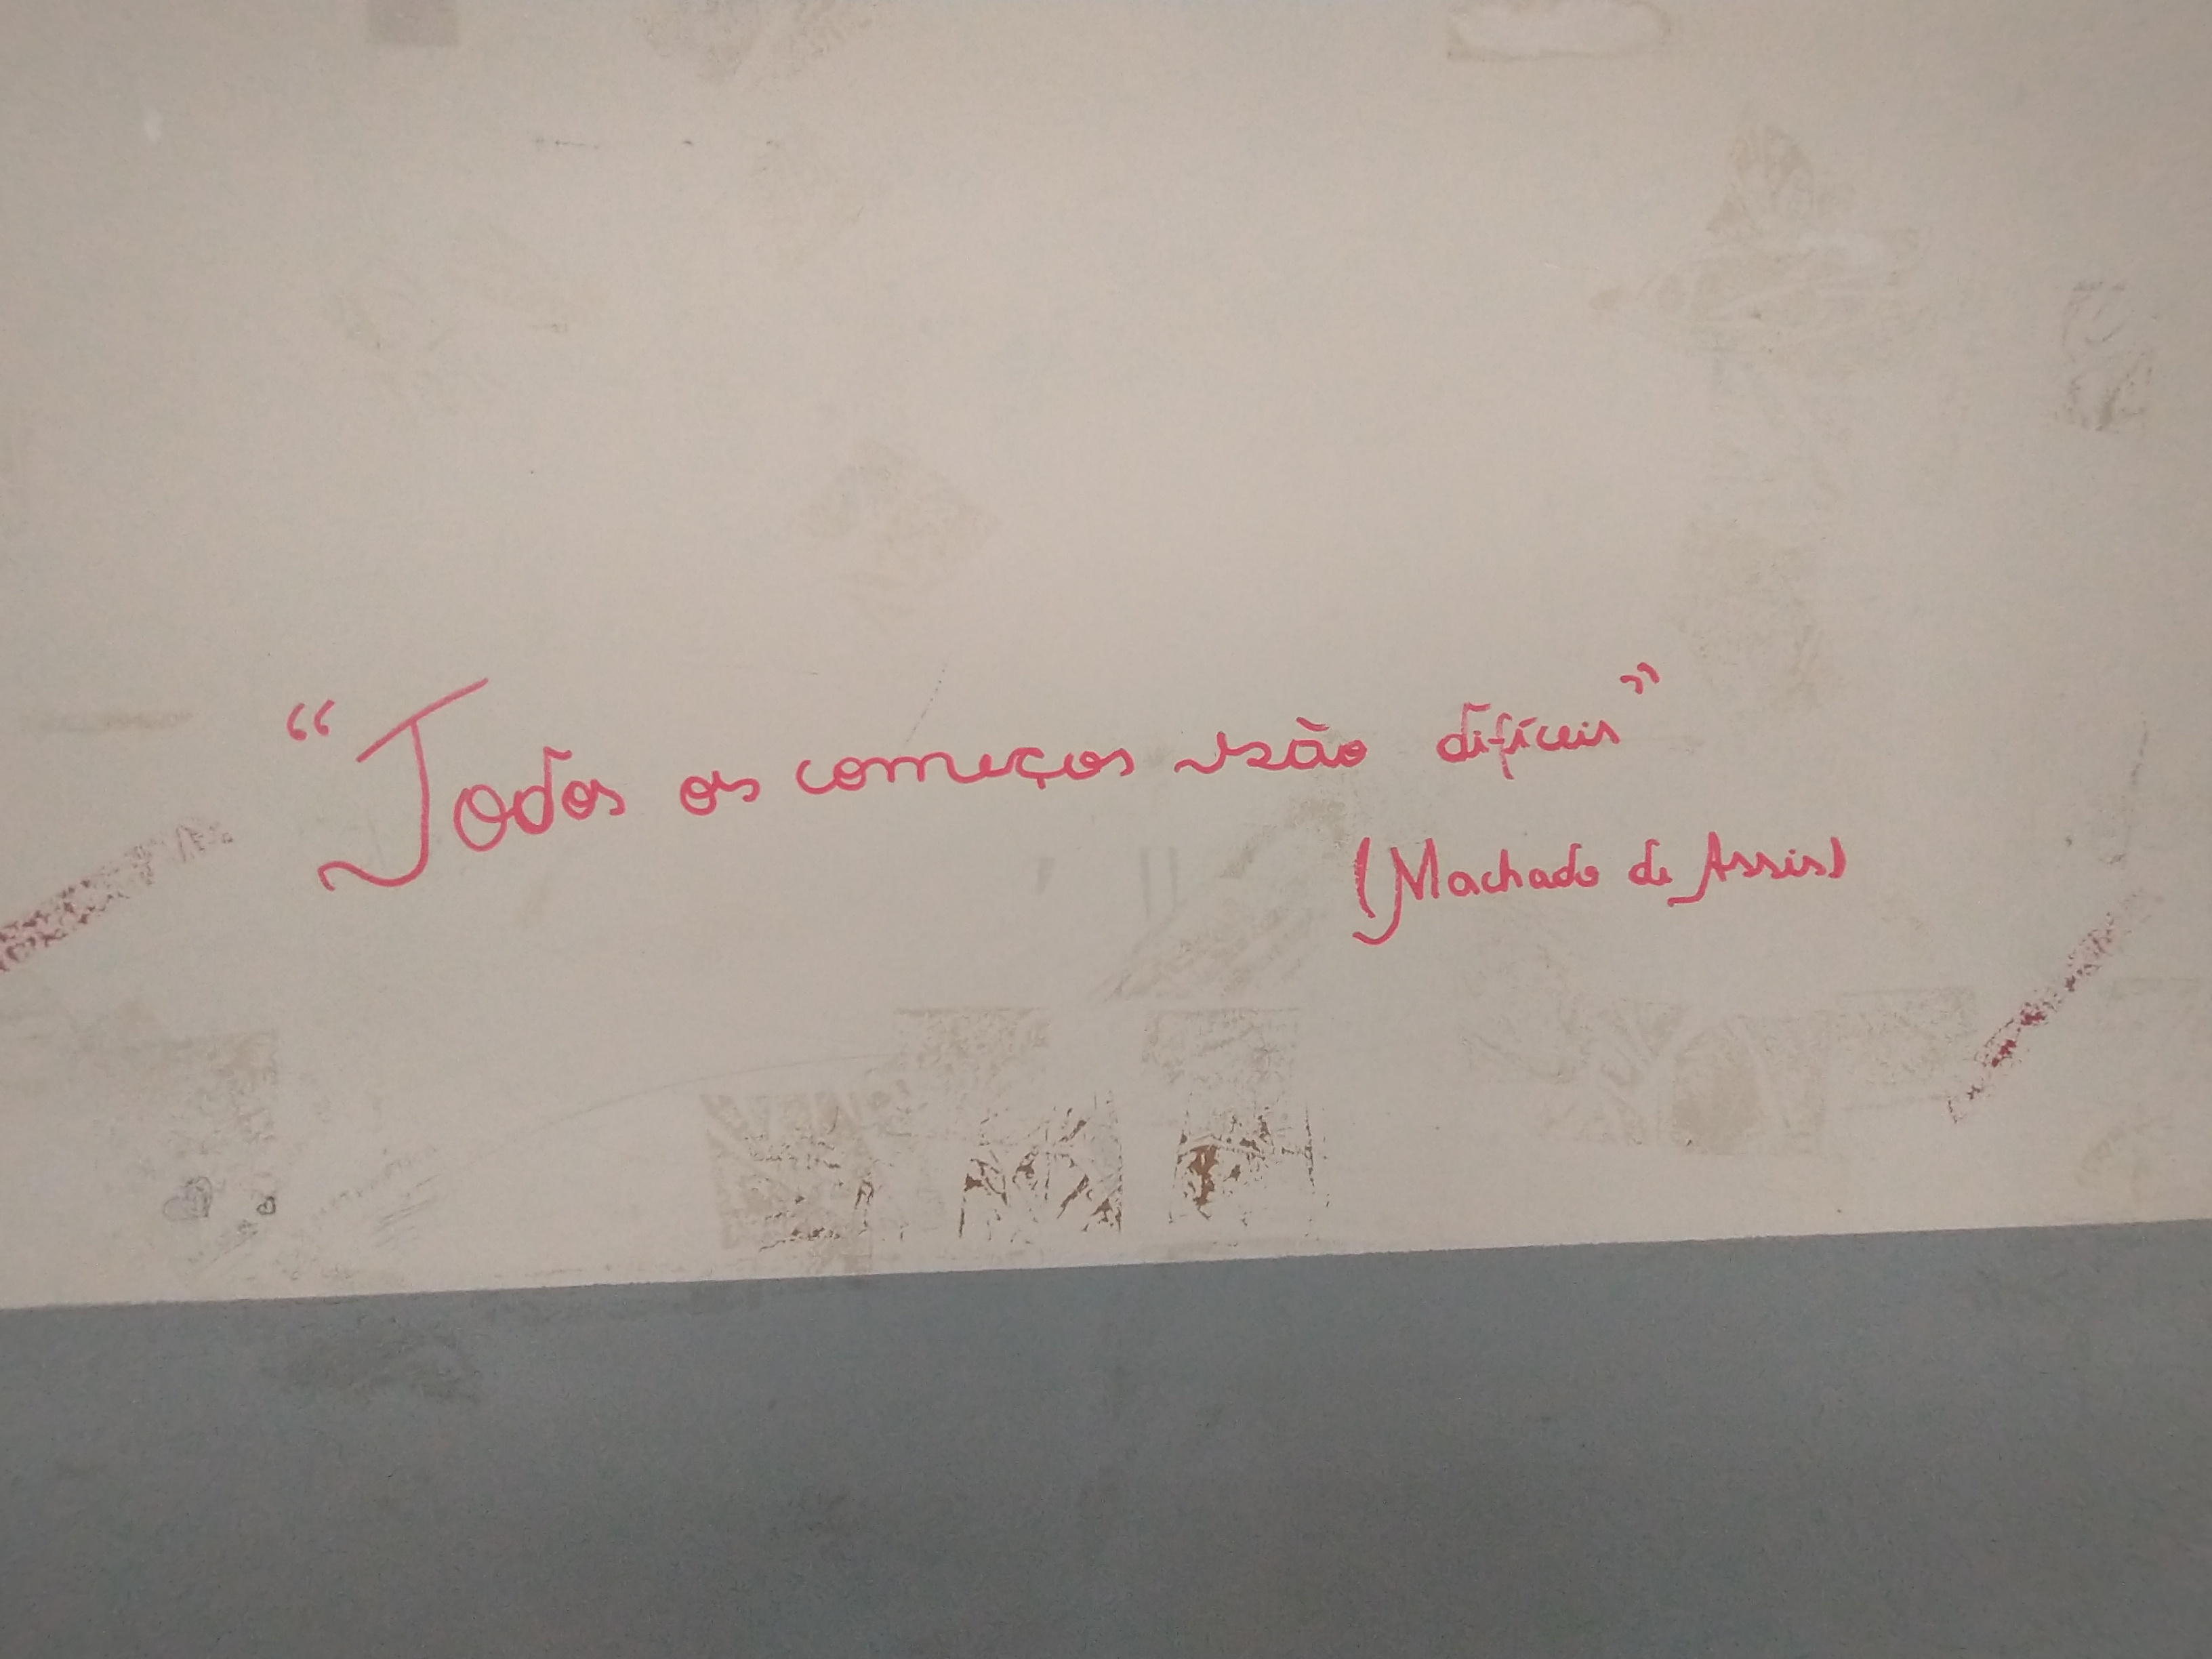 “Todos os começos são difíceis”
(Machado de Assis)